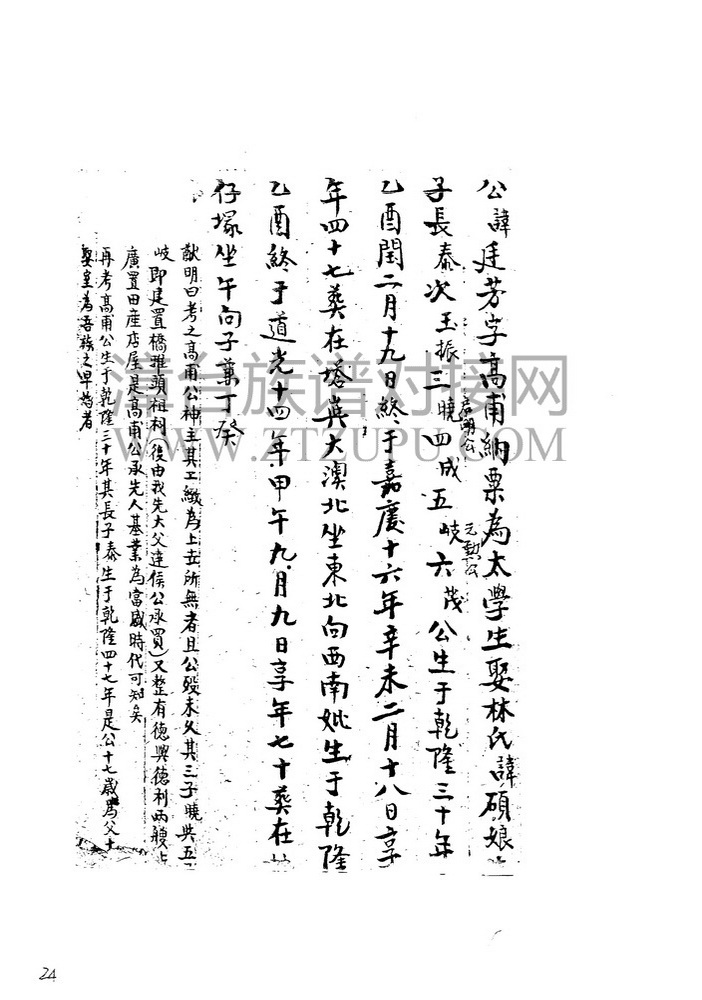 公諱廷芳字高甫納粟為太學生娶林氏諱碩娘
子長泰次玉振三曉四成五岐六茂公生于乾隆三十年
啓明公
元勲公
乙酉閏二月十九日終于嘉慶十六年辛未二月十八日享
年四十七葬在塔英大澳北坐東北向西南妣生于乾隆
乙酉終于道光十四年甲午九月九日享年七十葬在
仔塚坐午向子兼丁癸
猷明曰考之高甫公神主其工緻為上世所無者且公歿未久其三子曉與五
岐即建置橋雅頭祖祠(後由我先大父達侯公承買)又整有德興德利兩艘
廣置田産店屋是高甫公承先人基業為富盛時代可知矣
再考高甫公生于乾隆三十年其長子泰生于乾隆四十七年是公十七歲為父十
娶室為吾族之早婚者
漳台族谱对接网
WWW.ZTZUPU.COM
24